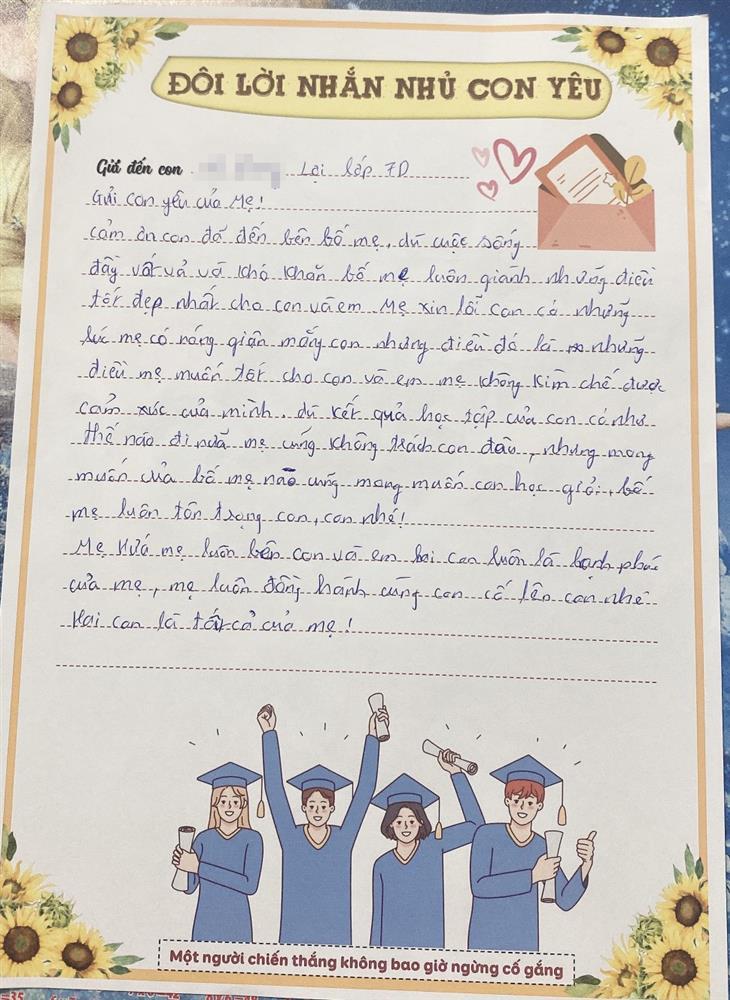 ĐÔI LỜI NHẮN NHỦ CON YÊU
Gửi đến con Lại lớp 7D
Gửi con yêu của Mẹ!
cảm ơn con đã đến bên bố mẹ, dù cuộc sống
đầy vất vả và khó khăn bố mẹ luôn giành những điều
tốt đẹp nhất cho con và em. Mẹ xin lỗi con có những
lúc mẹ có nóng giận mắng con nhưng điều đó là những
điều mẹ muốn tốt cho con và em mẹ không kìm chế được
cảm xúc của mình, dù kết quả học tập của con có như
thế nào đi nữa mẹ cũng không trách con đâu, nhưng mong
muốn của bố mẹ nào cũng mong muốn con học giỏi, bố
mẹ luôn tôn trọng con, con nhé!
Mẹ hứa mẹ luôn bên con và em hai con luôn là hạnh phúc
của mẹ, mẹ luôn đồng hành cùng con cố lên con nhé
Hai con là tất cả của mẹ!
Một người chiến thắng không bao giờ ngừng cố gắng